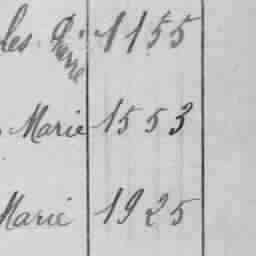 les Pierre 1155
Marie 1553
Marie 1925